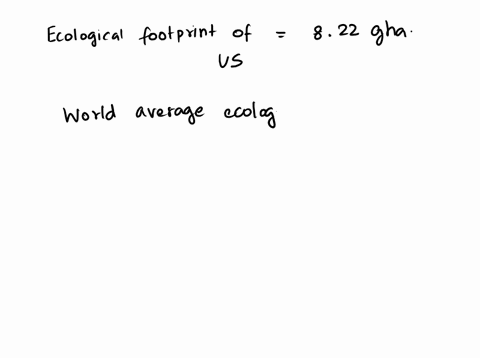 Ecological footprint of = 8.22 gha.
US
World average ecolog